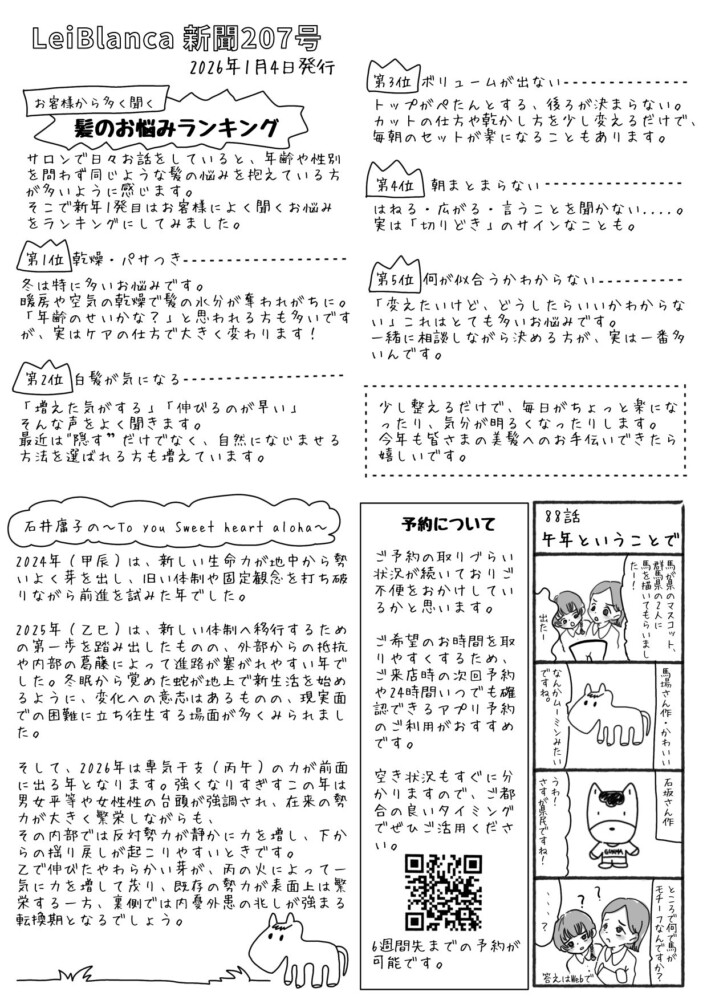 LeiBlanca 新聞207号
2026年1月4日発行
お客様から多く聞く
髪のお悩みランキング
サロンで日々お話をしていると、年齢や性別
を問わず同じような髪の悩みを抱えている方
が多いように感じます。
そこで新年1発目はお客様によく聞くお悩み
をランキングにしてみました。
第1位 乾燥・パサつき
冬は特に多いお悩みです。
暖房や空気の乾燥で髪の水分が奪われがちに。
「年齢のせいかな？」と思われる方も多いです
が、実はケアの仕方で大きく変わります！
第2位 白髪が気になる
「増えた気がする」「伸びるのが早い」
そんな声をよく聞きます。
最近は"隠す"だけでなく、自然になじませる
方法を選ばれる方も増えています。
第3位 ボリュームが出ない
トップがぺたんとする、後ろが決まらない。
カットの仕方や乾かし方を少し変えるだけで、
毎朝のセットが楽になることもあります。
第4位 朝まとまらない
はねる・広がる・言うことを聞かない....。
実は「切りどき」のサインなことも。
第5位 何が似合うかわからない
「変えたいけど、どうしたらいいかわからな
い」これはとても多いお悩みです。
一緒に相談しながら決める方が、実は一番多
いんです。
少し整えるだけで、毎日がちょっと楽にな
ったり、気分が明るくなったりします。
今年も皆さまの美髪へのお手伝いできたら
嬉しいです。
石井庸子の～To you Sweet heart aloha～
2024年（甲辰）は、新しい生命力が地中から勢
いよく芽を出し、旧い体制や固定観念を打ち破
りながら前進を試みた年でした。
2025年（乙巳）は、新しい体制へ移行するため
の第一歩を踏み出したものの、外部からの抵抗
や内部の葛藤によって進路が塞がれやすい年で
した。冬眠から覚めた蛇が地上で新生活を始め
るように、変化への意志はあるものの、現実面
での困難に立ち往生する場面が多くみられまし
た。
そして、2026年は専気干支（丙午）の力が前面
に出る年となります。強くなりすぎすこの年は
男女平等や女性性の台頭が強調され、在来の勢
力が大きく繁栄しながらも、
その内部では反対勢力が静かに力を増し、下か
らの揺り戻しが起こりやすいときです。
乙で伸びたやわらかい芽が、丙の火によって一
気に力を増して茂り、既存の勢力が表面上は繁
栄する一方、裏側では内憂外患の兆しが強まる
転換期となるでしょう。
予約について
ご予約の取りづらい
状況が続いておりご
不便をおかけしてい
るかと思います。
ご希望のお時間を取
りやすくするため、
ご来店時の次回予約
や24時間いつでも確
認できるアプリ予約
のご利用がおすすめ
です。
空き状況もすぐに分
かりますので、ご都
合の良いタイミング
でぜひご活用くださ
い。
6週間先までの予約が
可能です。
88話
午年ということで
馬が県のマスコット、
群馬県の2人に
馬を描いてもらいまし
たー！
出たー
馬場さん作・かわいい
なんかムーミンみたい
ですね。
石坂さん作
うわ！
さすが県民ですね！
GUNMA
ところで何で馬が
モチーフなんですか？
？
？
・・・？
答えはWebで